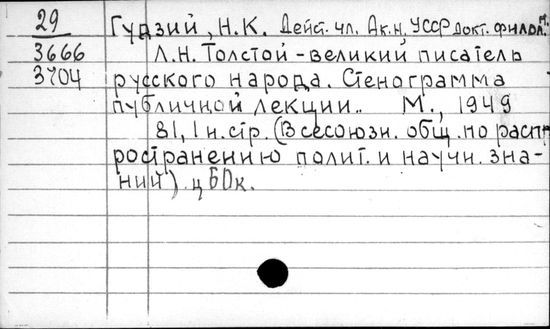 29 Гудзий, Н.К. Дейст. чл. Ак.н. УССР докт. филол.
3666 Л.Н. Толстой - великий писатель
3704 русского народа. Стенограмма
публичной лекции.. М., 1949
81, 1 н. стр. (Всесоюзн. общ. по расп
ространению полит. и научн. зна-
ний) ц